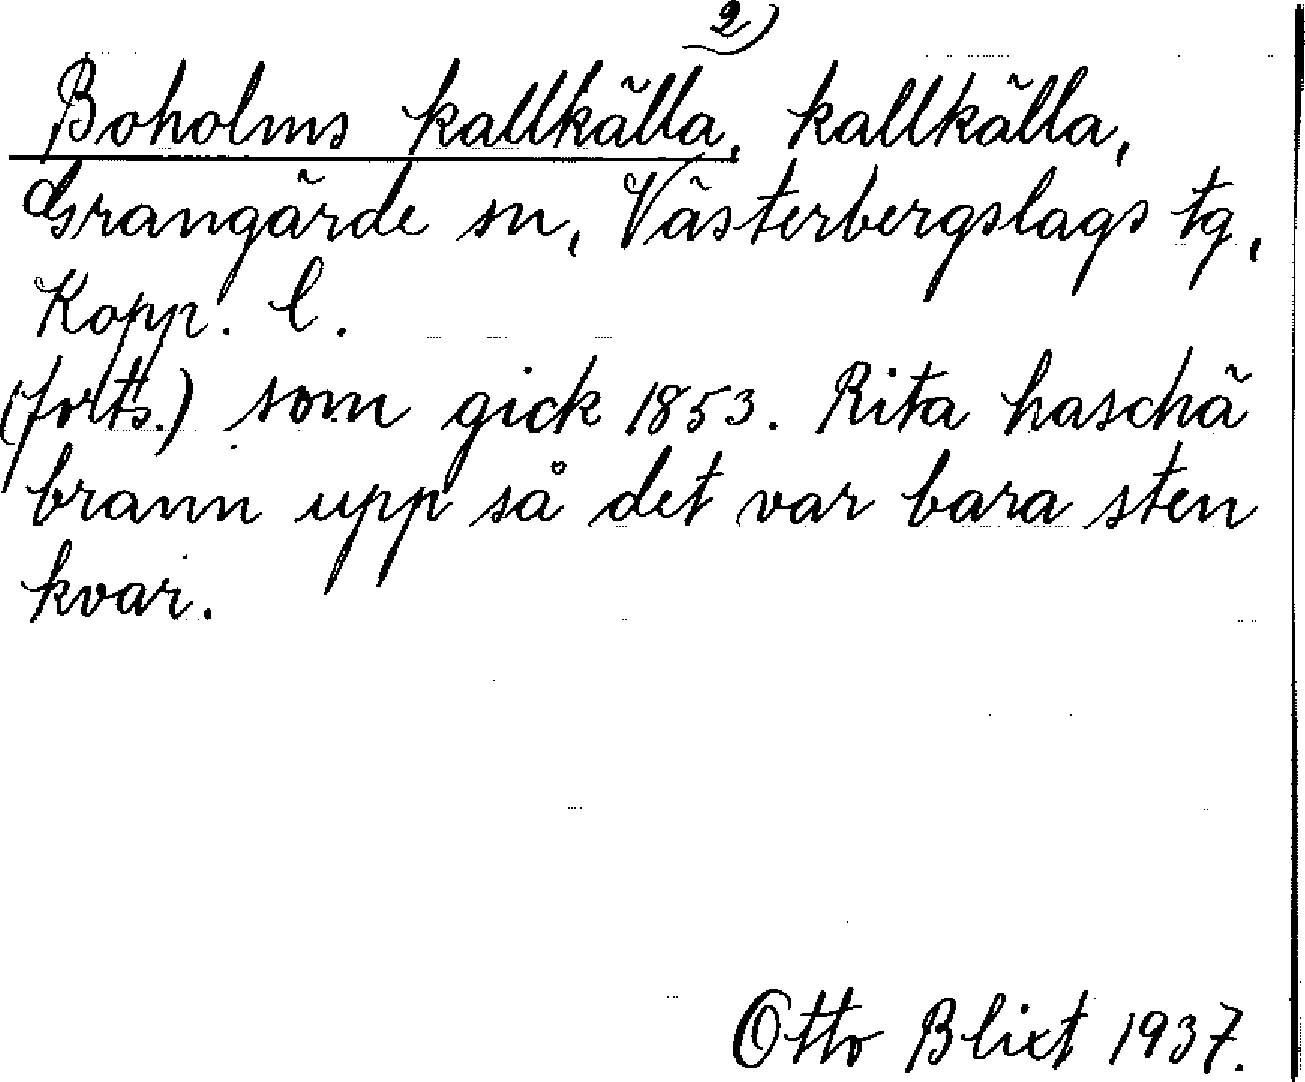 2)
Boholms kallkälla, kallkälla,
Grangärde sn, Västerbergslags tg,
Kopp. l.
(forts.) som gick 1853. Rita haschä
brann upp så det var bara sten
kvar.
Otto Blixt 1937.